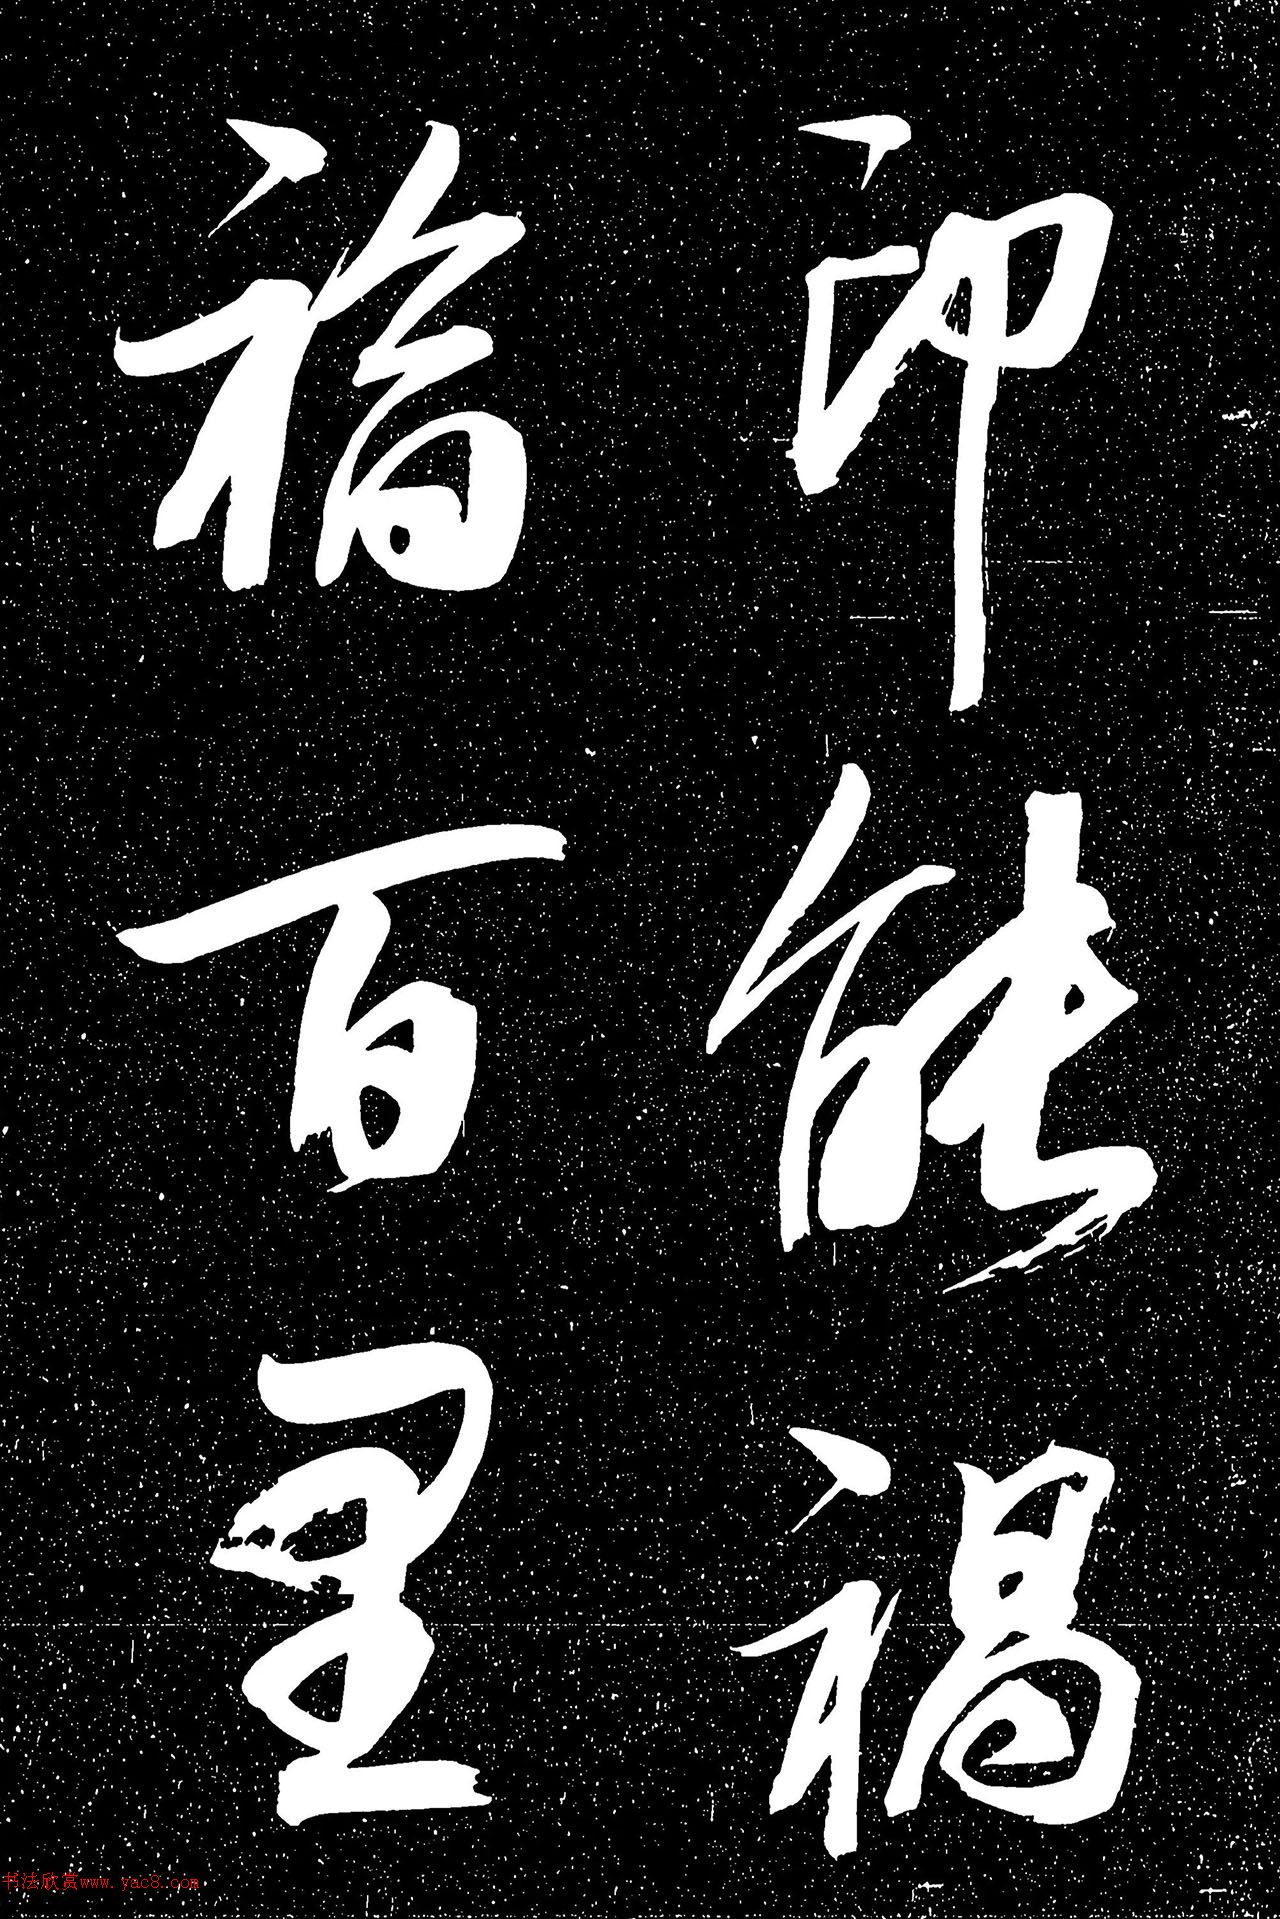 即能禍
福百里
书法欣赏www.yac8.com